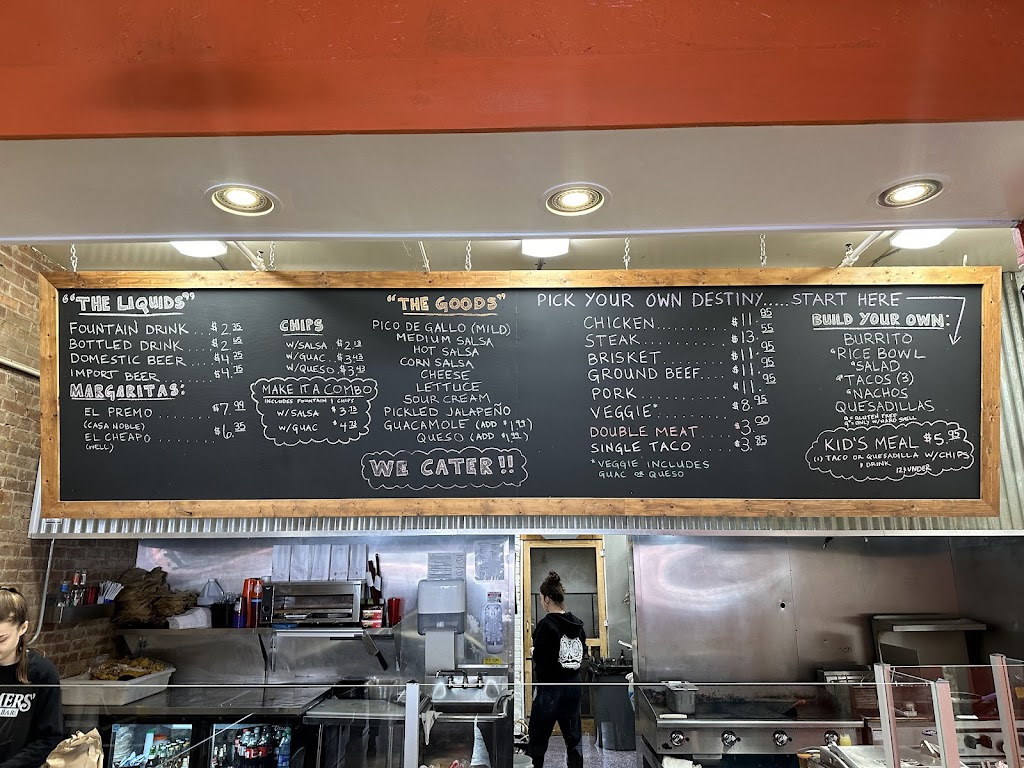 "THE LIQUIDS"
FOUNTAIN DRINK...$2.35
BOTTLED DRINK...$2.65
DOMESTIC BEER...$4.25
IMPORT BEER...$4.75
MARGARITAS:
EL PREMO ........$7.99
(CASA NOBLE)
EL CHEAPO ........$6.35
(WELL)
CHIPS
W/SALSA..$2.13
W/GUAC...$3.43
W/QUESO.$3.43
MAKE IT A COMBO
INCLUDES FOUNTAIN & CHIPS
W/SALSA $3.73
W/GUAC $4.73
"THE GOODS"
PICO DE GALLO (MILD)
MEDIUM SALSA
HOT SALSA
CORN SALSA
CHEESE
LETTUCE
SOUR CREAM
PICKLED JALAPEÑO
GUACAMOLE (ADD $1.99)
QUESO (ADD $1.99)
WE CATER!!
PICK YOUR OWN DESTINY.....START HERE
CHICKEN..........$11.95
STEAK............$13.55
BRISKET..........$11.95
GROUND BEEF....$11.95
PORK.............$11.95
VEGGIE*..........$8.95
DOUBLE MEAT......$3.00
SINGLE TACO......$3.85
*VEGGIE INCLUDES
GUAC OR QUESO
BUILD YOUR OWN:
BURRITO
*RICE BOWL
*SALAD
*TACOS (3)
*NACHOS
QUESADILLAS
*= GLUTEN FREE
*= ONLY W/HARD SHELL
KID'S MEAL $5.75
(1) TACO OR QUESADILLA W/CHIPS
& DRINK
12 & UNDER
MERS'
BAR